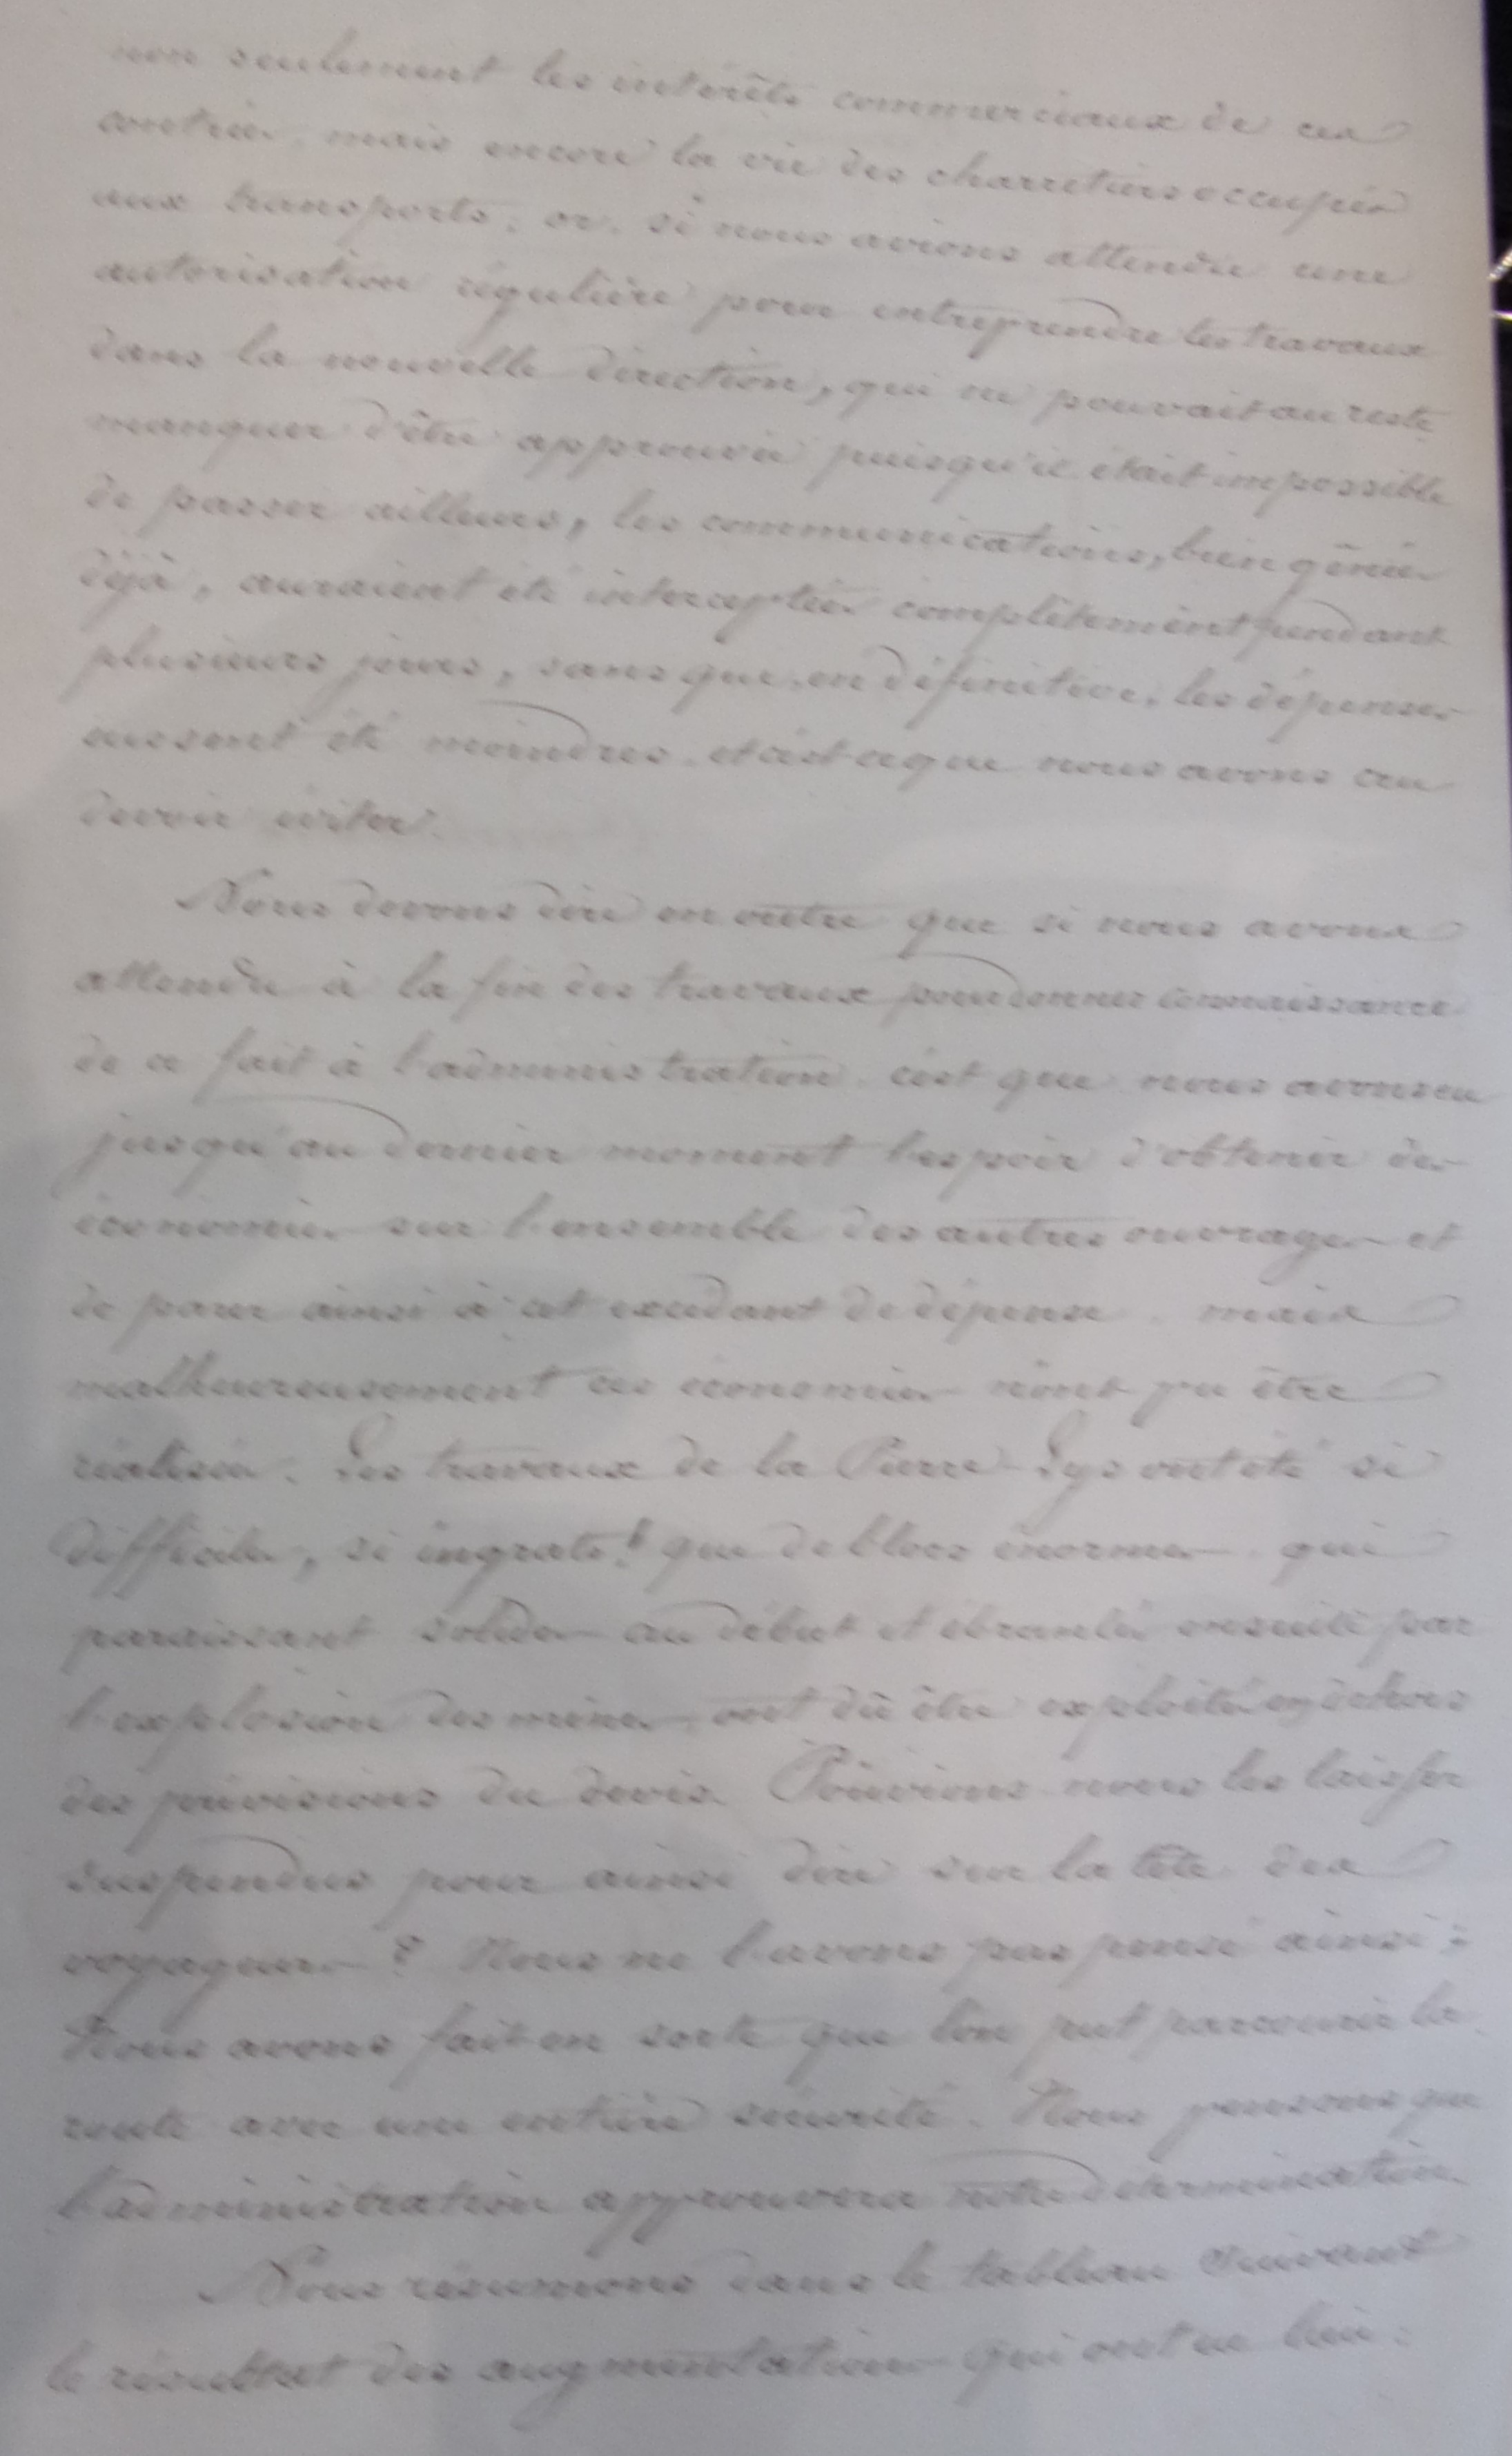 non seulement les intérêts commerciaux de ces
contrées, mais encore la vie des charretiers occupés
aux transports; or, si nous avions attendu une
autorisation régulière pour entreprendre les travaux
dans la nouvelle direction, qui ne pouvait au reste
manquer d'être approuvée puisqu'il était impossible
de passer ailleurs, les communications, bien gênées
déjà, auraient été interceptées complètement pendant
plusieurs jours, sans que, en définitive, les dépenses
eussent été moindres. et c'est ce que nous avons cru
devoir éviter.
Nous devons dire en outre que si nous avons
attendu à la fin des travaux pour donner connaissance
de ce fait à l'administration. c'est que nous avons eu
jusqu'au dernier moment l'espoir d'obtenir des
économies sur l'ensemble des autres ouvrages et
de parer ainsi à cet excédant de dépense. mais
malheureusement ces économies n'ont pu être
réalisées. Les travaux de la Pierre-Lys ont été si
difficiles, si ingrats! que de blocs énormes qui
paraissant solides au début et ébranlés ensuite par
l'explosion des mines, ont dû être exploités en dehors
des prévisions du devis. Pouvions-nous les laisser
suspendus pour ainsi dire sur la tête des
voyageurs? Nous ne l'avons pas pensé ainsi;
Nous avons fait en sorte que l'on put parcourir la
route avec une entière sécurité. Nous pensons que
l'administration approuvera notre détermination.
Nous résumons dans le tableau suivant
le résultat des augmentations qui ont eu lieu: